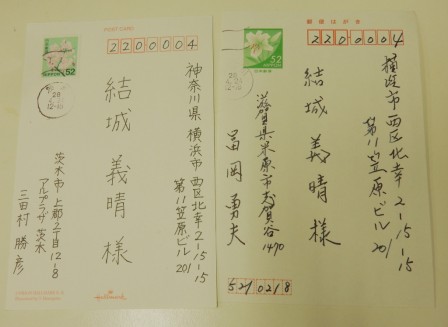 POST CARD
52
NIPPON
2200004
神奈川県 横浜市 西区北幸 2-15-15
第11笠原ビル 201
結城 義晴 様
茨木市 上郡2丁目12-8
アルプラザ 茨木
三田村 勝彦
Hallmark
郵便はがき
52
2200004
横浜市 西区北幸 2-15-15
第11笠原ビル 201
結城 義晴 様
滋賀県米原市志賀谷 1490
冨岡 勇夫
5210218